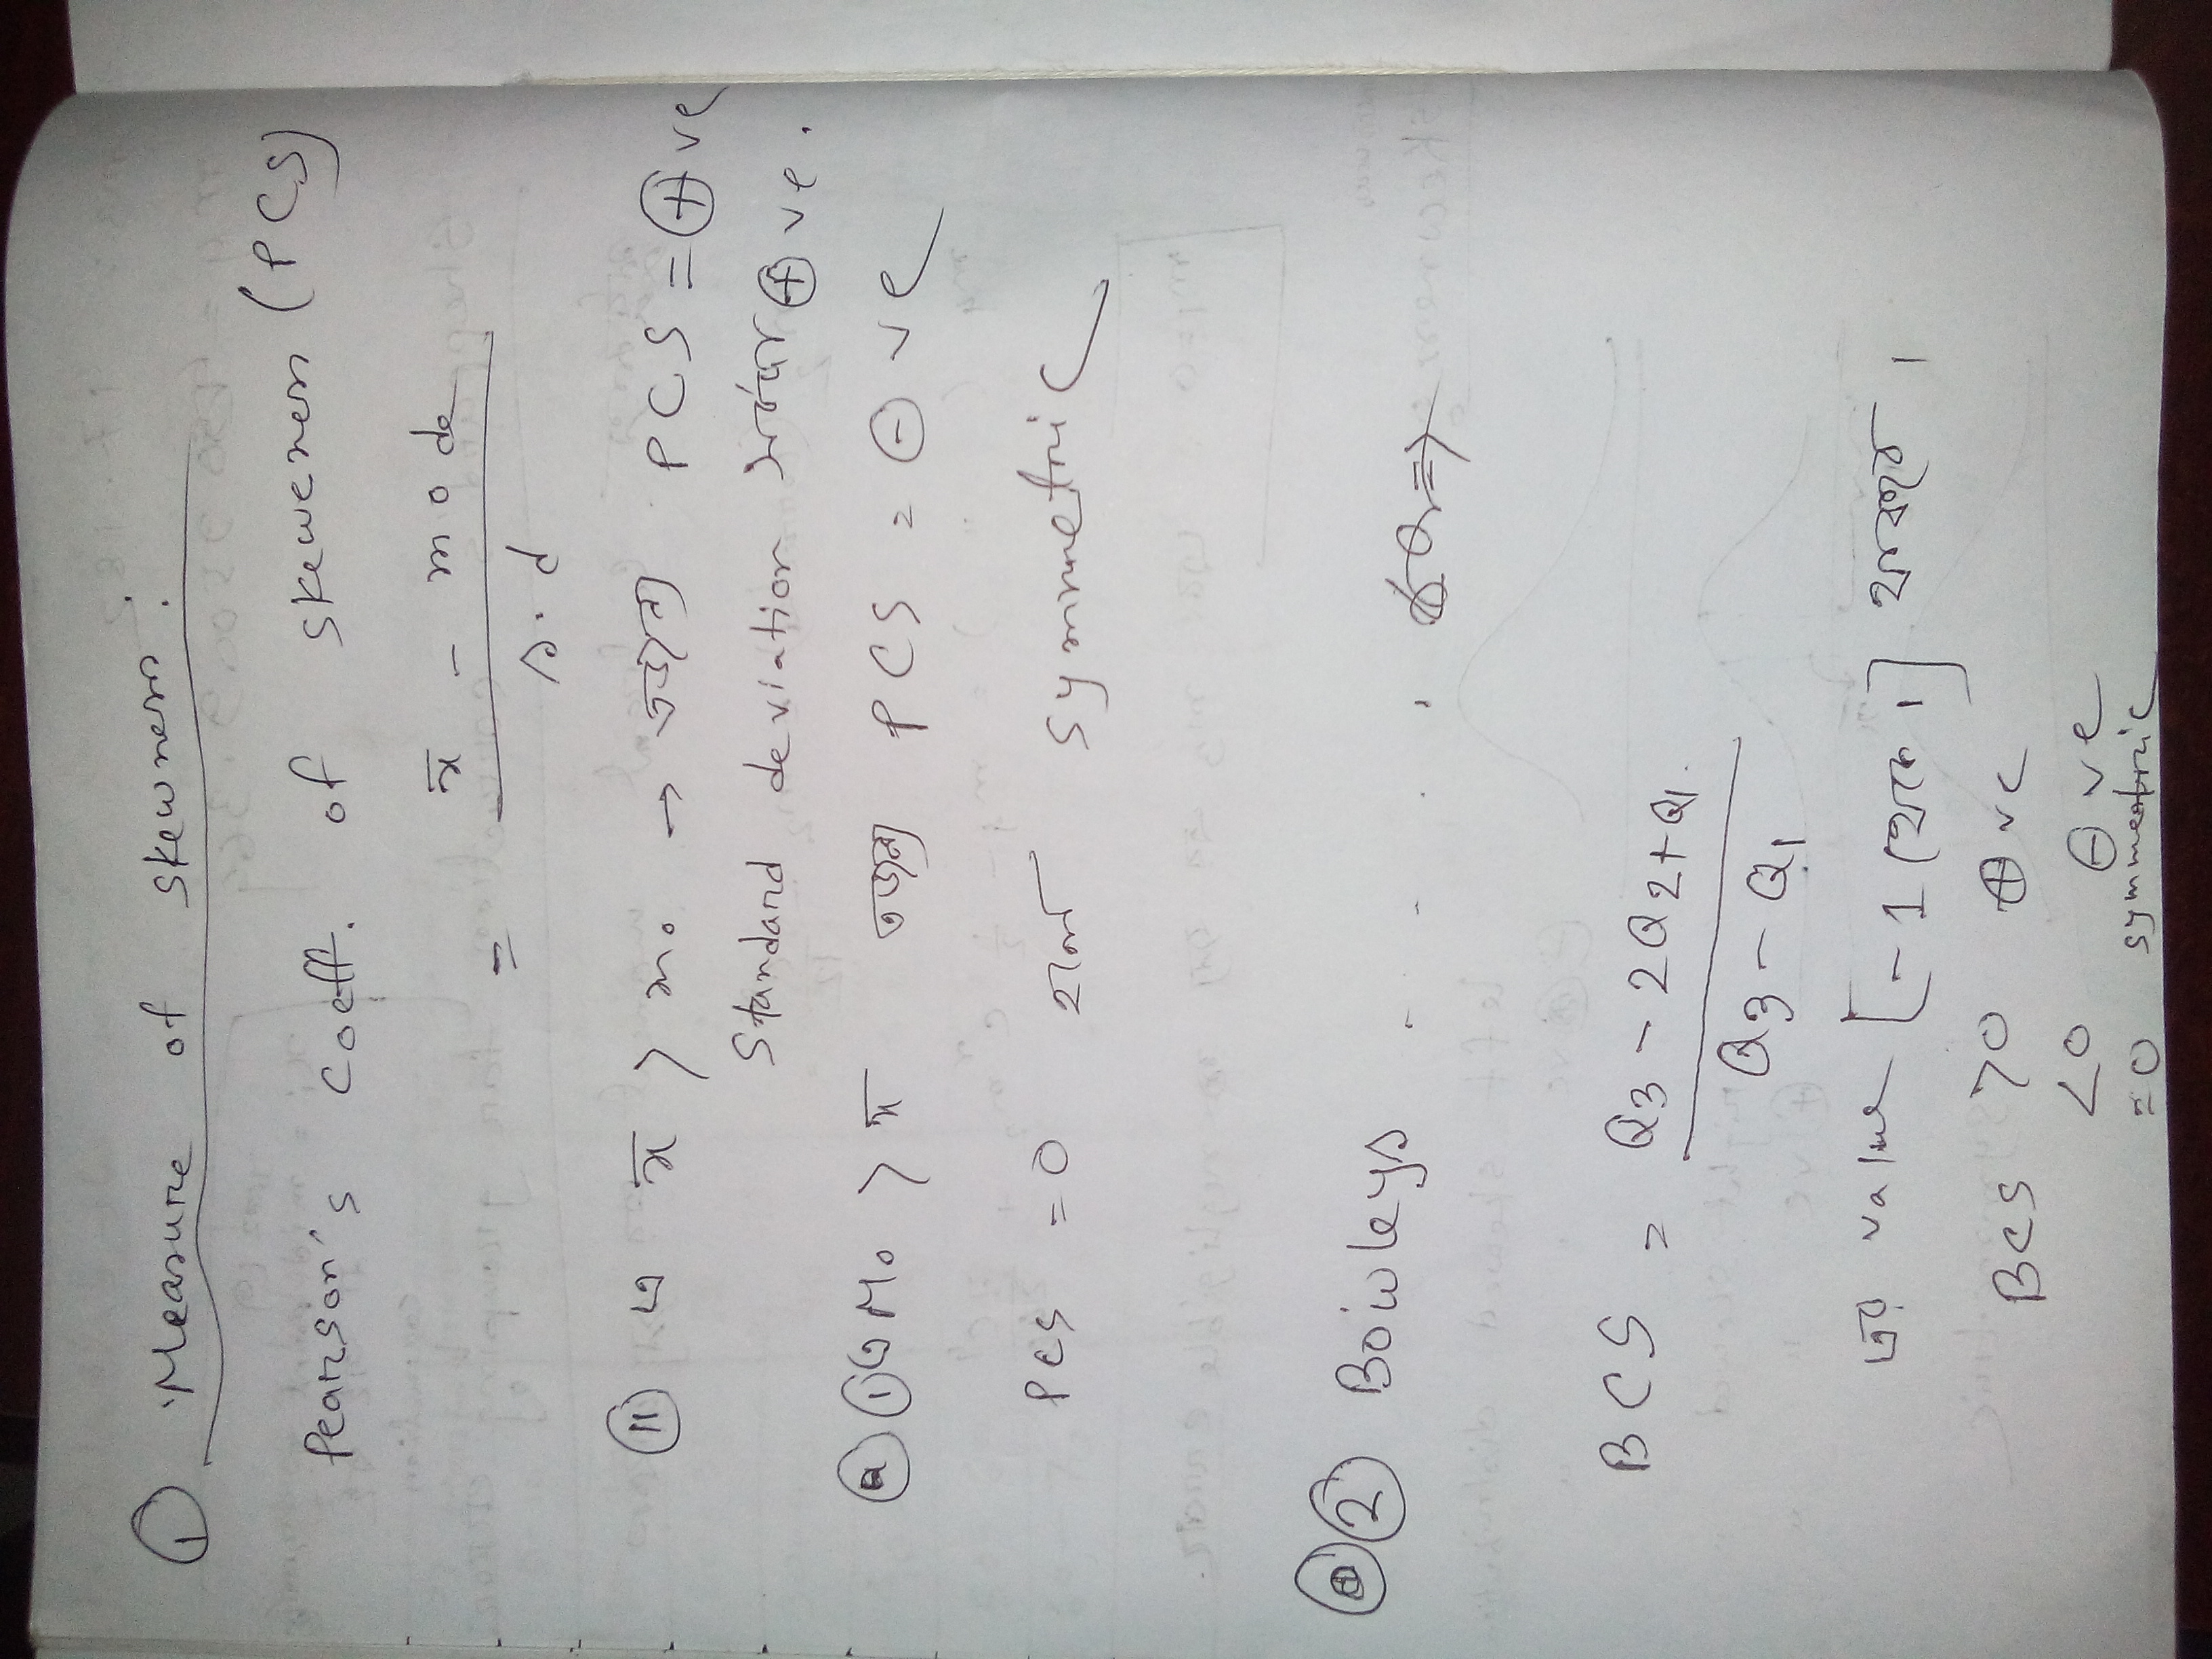 ① Measure of skewness.
Pearson's coeff. of skewness (PCS)
x̄ - mode
=
s.d
⑪ ও x̄ > mo → তাহলে PCS = ⊕ ve
Standard deviation সবসময় ⊕ ve.
① ও Mo > x̄ তাহলে PCS = ⊖ ve
PCS = 0 হলে symmetric
② Bowleys " " "
BCS = Q3 - 2Q2 + Q1
Q3 - Q1
এর value [-1 থেকে 1] থাকবে।
BCS >0 ⊕ ve
<0 ⊖ ve
=0 symmetric